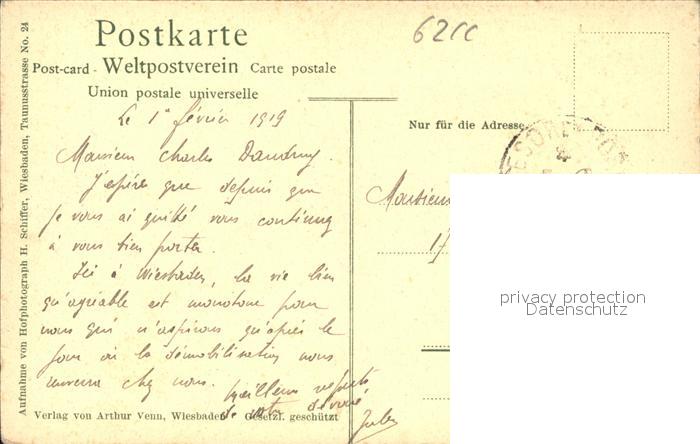 Postkarte
62cc
Post-card - Weltpostverein Carte postale
Union postale universelle
Nur für die Adresse
Aufnahme von Hofphotograph H. Schiffer, Wiesbaden, Taunusstrasse No. 24
Le 1er février 1919
Monsieur Charles
J'espère que depuis que
je vous ai quitté vous continuez
à vous bien porter.
Ici à Wiesbaden, la vie bien
qu'agréable est monotone pour
nous qui n'aspirons qu'après le
jour où la démobilisation nous
renverra chez nous.
Meilleurs respects
de votre dévoué
Jules
Monsieur
17
privacy protection
Datenschutz
Verlag von Arthur Venn, Wiesbaden
Gesetzl. geschützt